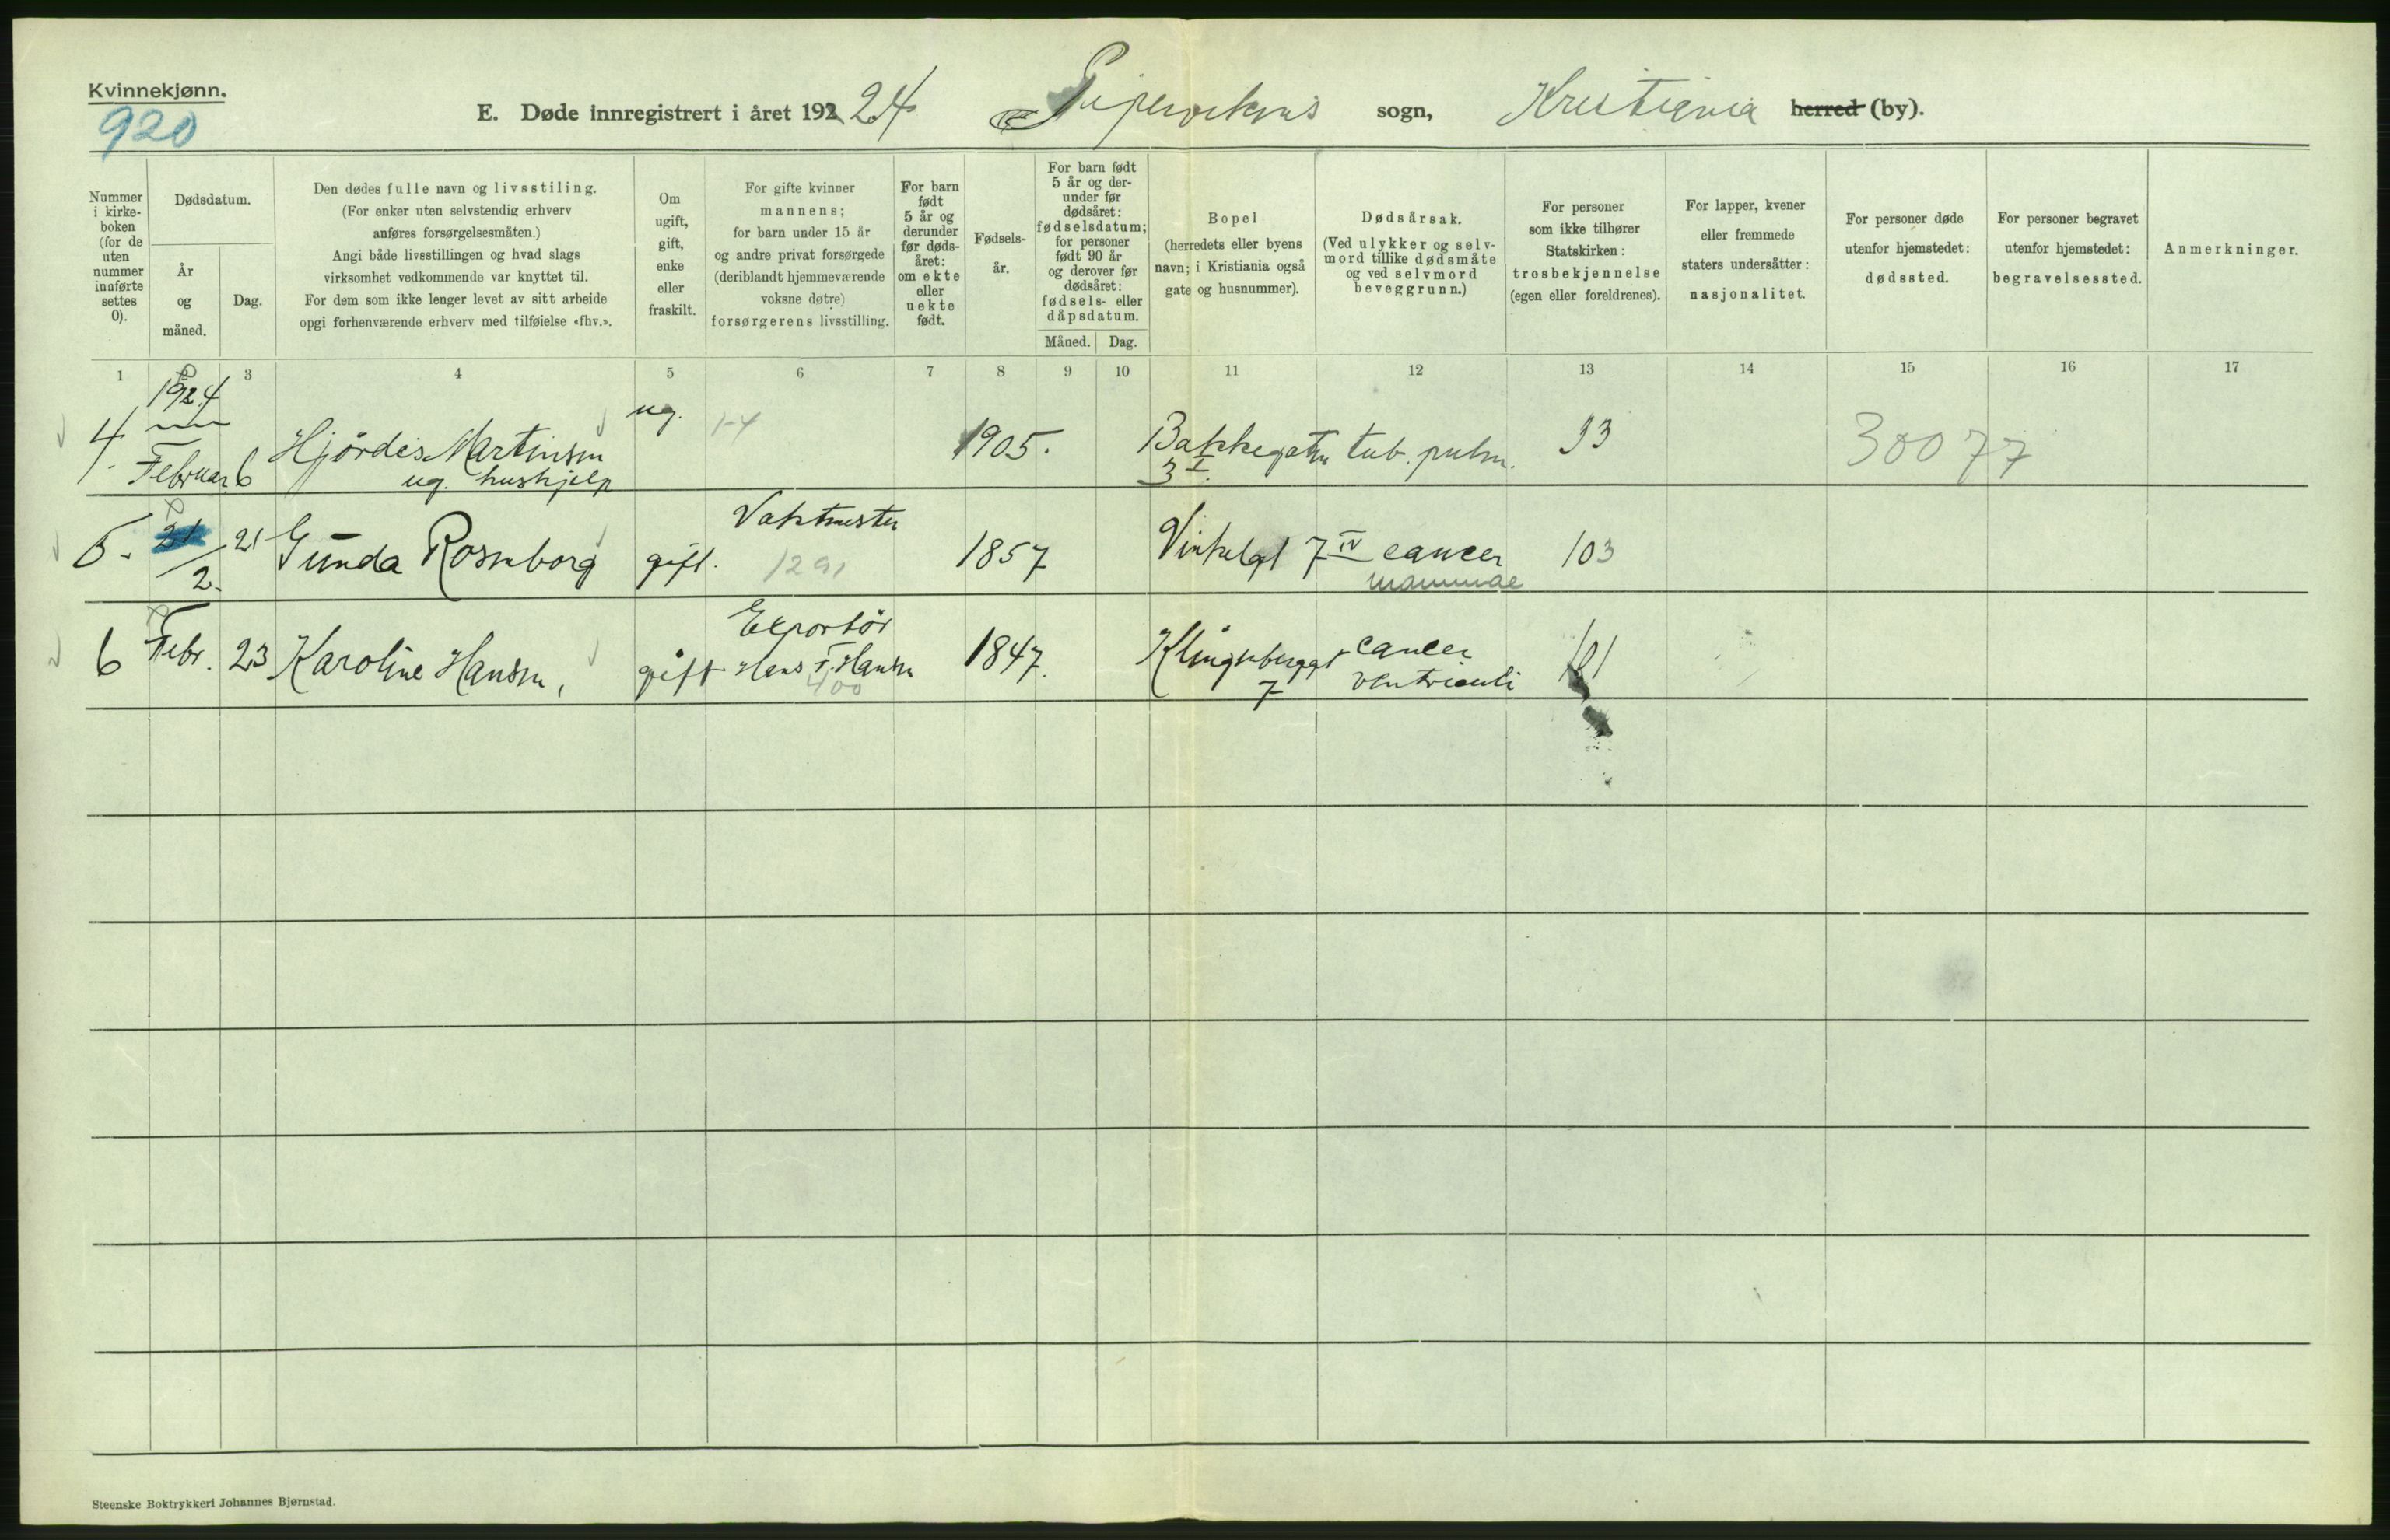 Kvinnekjønn.
920
E. Døde innregistrert i året 192 24 Pipervikens sogn, Kristiania herred (by).
Nummer i kirke- boken (for de uten nummer innførte settes 0).
Dødsdatum.
År og måned.
Dag.
Den dødes fulle navn og livsstiling.
(For enker uten selvstendig erhverv
anføres forsørgelsesmåten.)
Angi både livsstillingen og hvad slags
virksomhet vedkommende var knyttet til.
For dem som ikke lenger levet av sitt arbeide
opgi forhenværende erhverv med tilføielse «fhv.».
Om ugift, gift, enke eller fraskilt.
For gifte kvinner
mannens;
for barn under 15 år
og andre privat forsørgede
(deriblandt hjemmeværende
voksne døtre)
forsørgerens livsstilling.
For barn født 5 år og derunder før døds- året: om ekte eller uekte født.
Fødsels- år.
For barn født
5 år og der-
under før
dødsåret:
fødselsdatum;
for personer
født 90 år
og derover før
dødsåret:
fødsels- eller
dåpsdatum.
Måned. Dag.
Bopel
(herredets eller byens
navn; i Kristiania også
gate og husnummer).
Dødsårsak.
(Ved ulykker og selv-
mord tillike dødsmåte
og ved selvmord
beveggrunn.)
For personer
som ikke tilhører
Statskirken:
trosbekjennelse
(egen eller foreldrenes).
For lapper, kvener
eller fremmede
staters undersåtter:
nasjonalitet.
For personer døde
utenfor hjemstedet:
dødssted.
For personer begravet
utenfor hjemstedet:
begravelsessted.
Anmerkninger.
1 3 4 5 6 7 8 9 10 11 12 13 14 15 16 17
1924
4. Februar 6 Hjördis Martinsen ug. 1905. Bakkegaten tub. pulm. 33 30077
ug. hushjelp 3 I.
Vaktmester
5. 21 2. 21 Gunda Rosenborg gift. 1291 1857 Vinkelgt 7 IV cancer 103
mammae
Exportör
6 Febr. 23 Karoline Hansen, gift Hans F. Hansen 1847. Klingenberggt cancer 101
400 7 ventriculi
Steenske Boktrykkeri Johannes Bjørnstad.